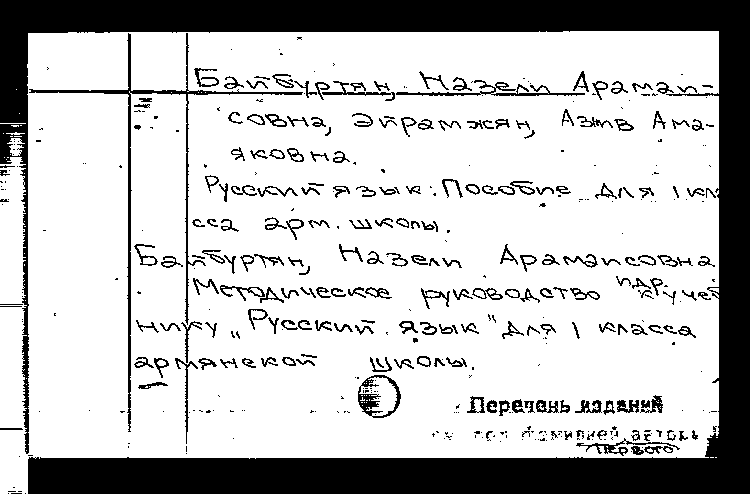 Байбуртян, Назели Арамаи-
совна, Эйрамжян, Азтв Ама-
яковна.
Русский язык: Пособие для 1 кла
сса арм. школы.
Байбуртян, Назели Арамаисовна
Методическое руководство к учеб
нику „Русский язык" для 1 класса
армянской школы.
Перечень изданий
под фамилией автора
первого